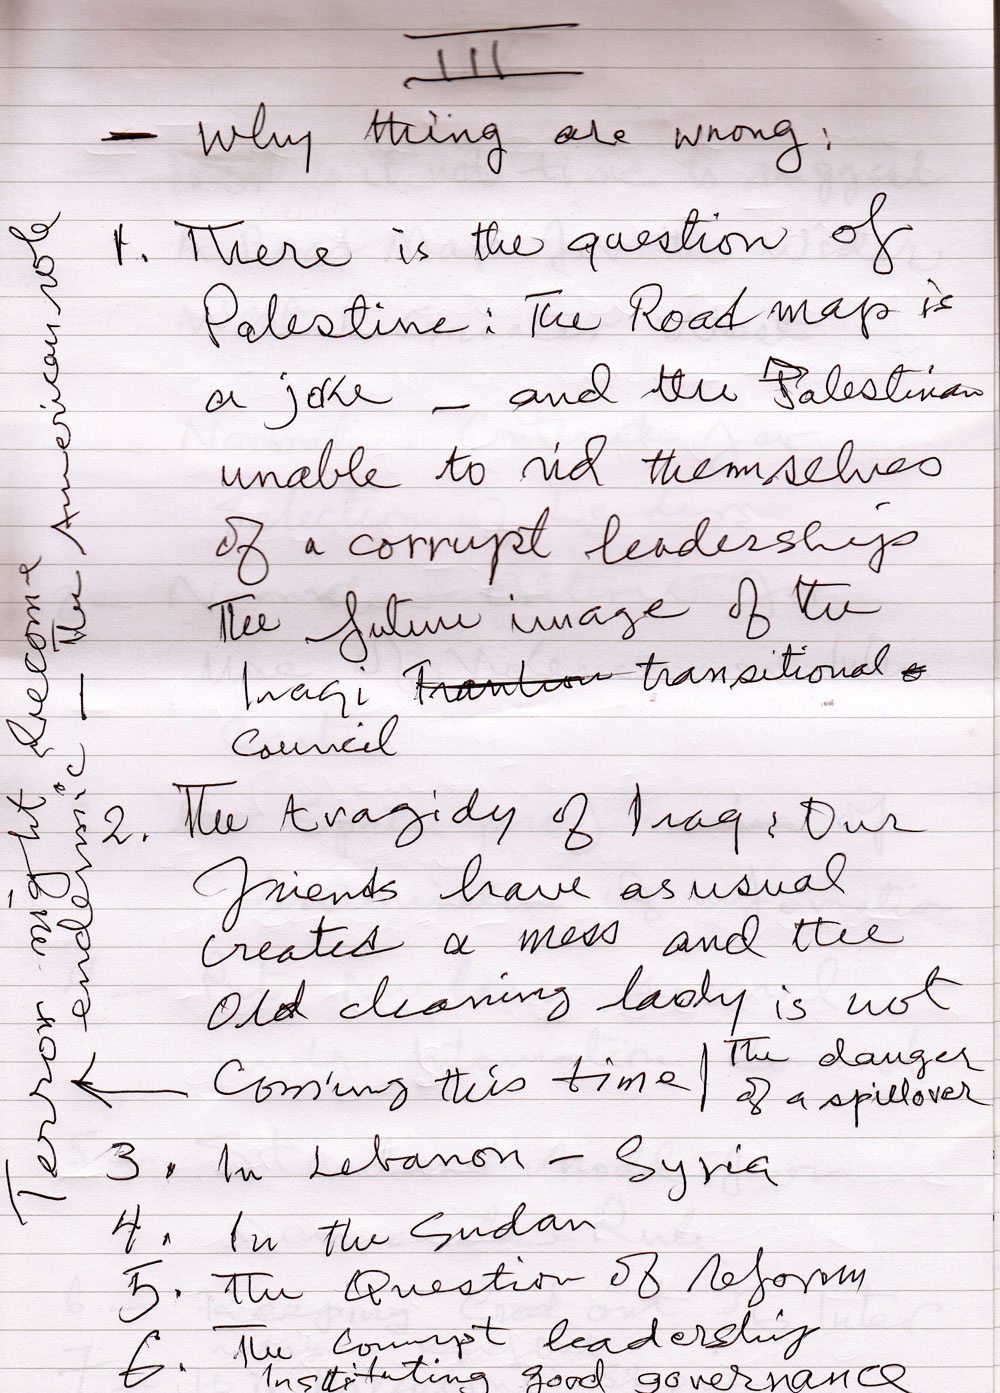 III
- Why thing are wrong:
1. There is the question of
Palestine: The Road map is
a joke - and the Palestinian
unable to rid themselves
of a corrupt leadership
The future image of the
Iraqi transitional
Council
2. The tragidy of Iraq: Our
friends have as usual
created a mess and the
Old cleaning lady is not
Coming this time | The danger
of a spillover
3. In Lebanon - Syria
4. In the Sudan
5. The Question of reform
6. The corrupt leadership
Instituting good governance
Terror might become
endemic - The American role